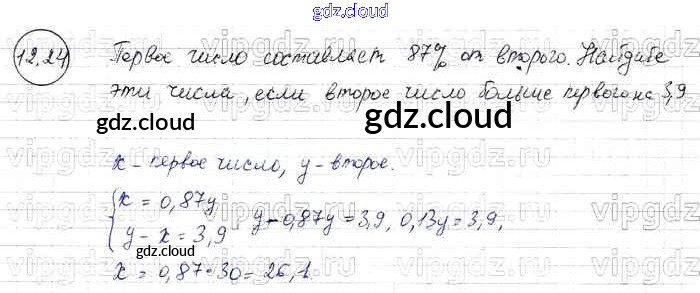 gdz.cloud
12.24 Первое число составляет 87% от второго. Найдите
эти числа, если второе число больше первого на 3,9
gdz.cloud gdz.cloud
x - первое число, y - второе.
{x = 0,87y
{y - x = 3,9 y - 0,87y = 3,9, 0,13y = 3,9,
gdz.cloud
x = 0,87·30 = 26,1.
vipgdz.ru